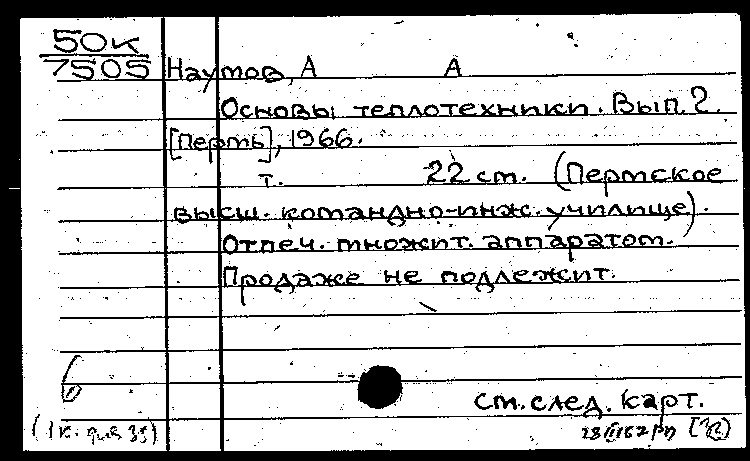 50к
7505
Наумов, А А
Основы теплотехники. Вып. 2.
[Пермь], 1966.
т. 22 ст. (Пермское
высш. командно-инж. училище).
Отпеч. множит. аппаратом.
Продаже не подлежит.
б
см. след. карт.
(1к.